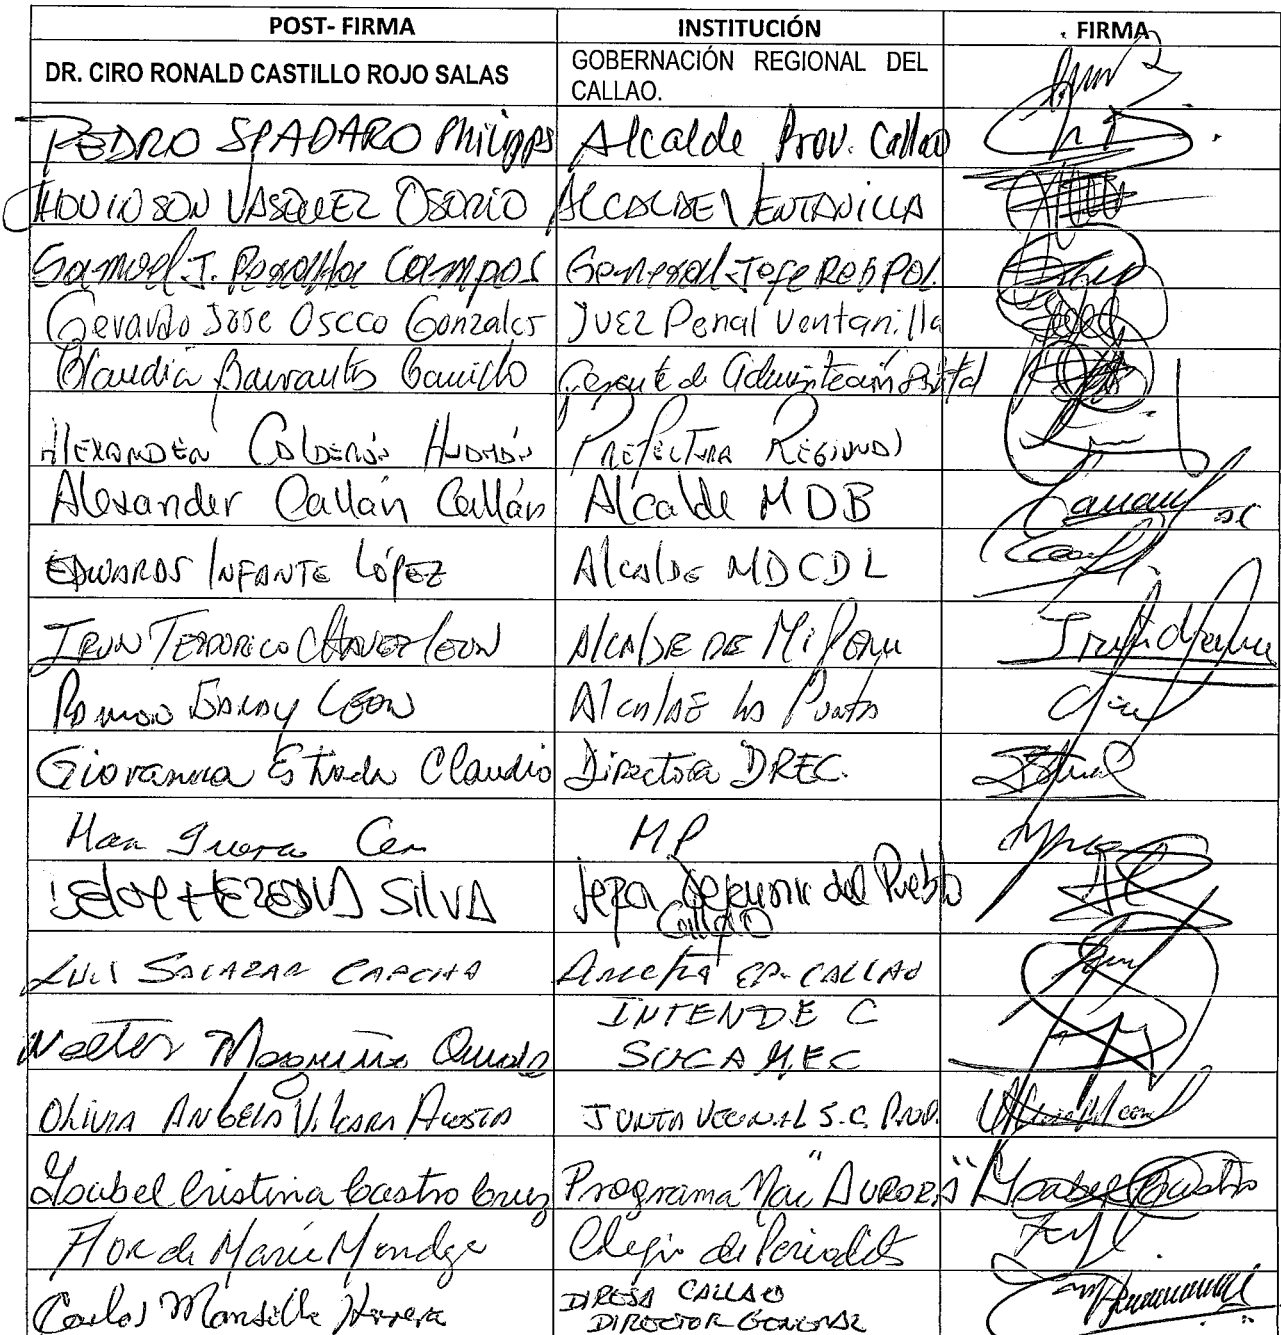 POST- FIRMA INSTITUCIÓN FIRMA
DR. CIRO RONALD CASTILLO ROJO SALAS GOBERNACIÓN REGIONAL DEL
CALLAO.
PEDRO SPADARO Philipps Alcalde Prov. Callao
JHOVINSON VASQUEZ OSORIO ALCALDE VENTANILLA
Samuel J. Campos General Jefe REGPOL
Gerardo Jose Oscco Gonzales Juez Penal Ventanilla
Claudia Barrantes Carrillo Gerente de
Alexander Calderón Huamán Prefectura Regional
Alexander Callán Callán Alcalde MDB
EDWARDS INFANTE LÓPEZ Alcalde MDCDL
IRVIN TEODORICO CHAVEZ LEON Alcalde DE Mi Peru
Ramon Garay Leon Alcalde La Punta
Giovanna Estrada Claudio Directora DREC.
MP
HEREDIA SILVA Jefa Defensoria del Pueblo
Callao
LUIS SALAZAR CAPCHA EP. CALLAO
INTENDE C
Maguiña SUCAMEC
OLIVIA ANGELA Vilcara Acosta JUNTA VECINAL S.C. PROV.
Ysabel Cristina Castro Cruz Programa Nac "AURORA" Ysabel Castro
Flor de María Mendoza Colegio de Periodistas
Carlos Mansilla Herrera DIRESA CALLAO
DIRECTOR GENERAL